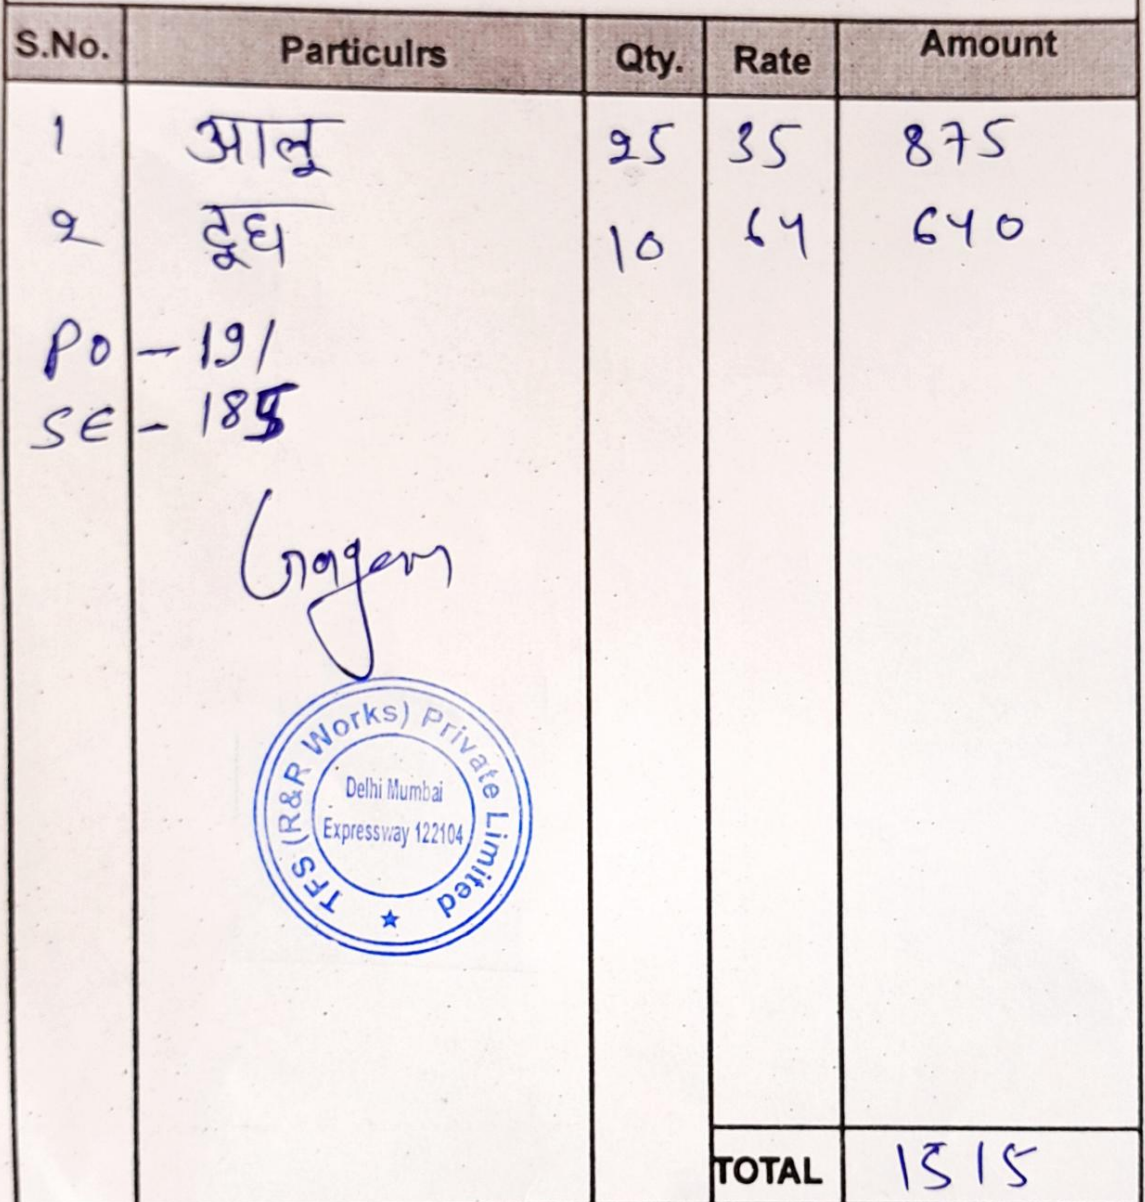 S.No. Particulrs Qty. Rate Amount
1 आलू 25 35 875
2 दूध 10 64 640
PO - 191
SE - 185
Gagan
TFS (R&R Works) Private Limited
Delhi Mumbai
Expressway 122104
TOTAL 1515